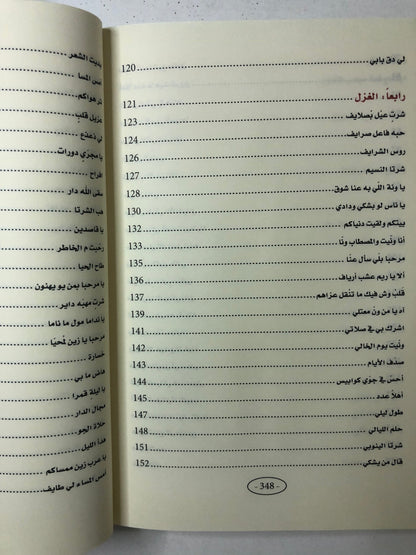 لي دق بابي 120
رابعاً، الغزل 121
شرتٍ عيّل بصلايف 123
حبّه فاعل صرايف 124
روس الشرايف 126
شرتا النسيم 127
يا ونّة اللّي به عنا شوق 128
يا ناس لو بشكي ودادي 130
بيتكم ولقيت دنياكم 132
أنا ونّيت والمصطاب ونّا 133
مرحبا بلّي سأل عنّا 135
ألا يا ريم عشب أرياف 136
قلبٍ وش فيك ما تنقل عزاهم 137
آه يا من ونّ معتلي 139
اشرك بي في صلاتي 141
ونّيت يوم الخالي 142
صدف الأيام 143
أحسّ في جوّي كوابيس 144
أهلاً عدد 145
طول ليلي 147
حلم الليالي 148
شرتا الينوبي 151
قال من يشكي 152
- 348 -
الشعر
أمس المسا
قلب
لي ذعذع
يا مجري دورات
أفراح
سقى الله دار
هب الشرتا
يا قاصدين
رحبت م الخاطر
طاح الحيا
يا مرحبا بمن يو يهنون
شرت مهبّه داير
يا نداما مول ما ناما
مرحبا يا زين لمحيّا
خسارة
هاض ما بي
يا ليلة قمرا
مجمال الدار
حلاة الجو
هذا الليل
يا عرب زين ممساكم
أمس المساء لي طايف